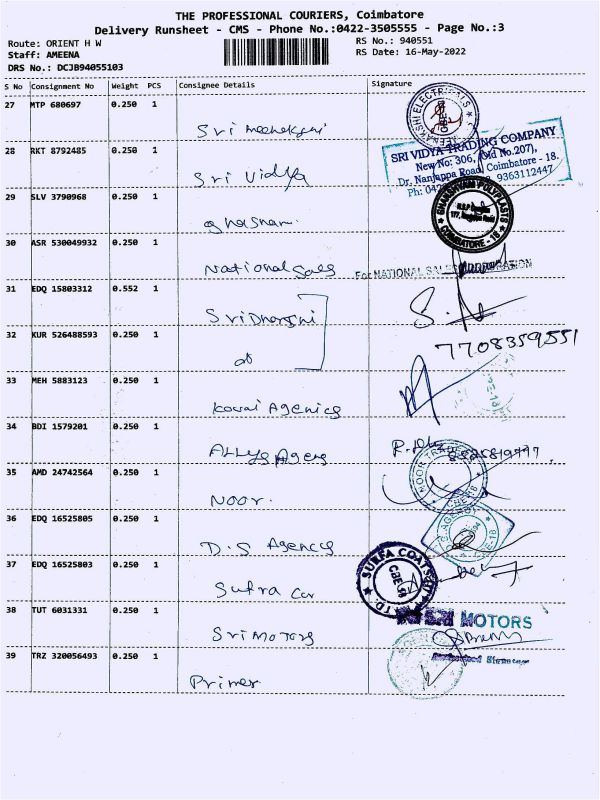 THE PROFESSIONAL COURIERS, Coimbatore
Delivery Runsheet - CMS - Phone No.:0422-3505555 - Page No.:3
Route: ORIENT H W
RS No.: 940551
Staff: AMEENA
RS Date: 16-May-2022
DRS No.: DCJB94055103
S No Consignment No Weight PCS Consignee Details Signature
27 MTP 680697 0.250 1
Sri meenakshi
28 RKT 8792485 0.250 1
Sri Vidya
SRI VIDYA TRADING COMPANY
New No: 306, (Old No.207),
Dr. Nanjappa Road, Coimbatore - 18.
9363112447
29 SLV 3790968 0.250 1
GHANSHYAM POLYPLASTS
COIMBATORE - 18
30 ASR 530049932 0.250 1
National Sales
For NATIONAL SALES CORPORATION
31 EDQ 15803312 0.552 1
32 KUR 526488593 0.250 1
7708359551
33 MEH 5883123 0.250 1
Kovai Agencies
34 BDI 1579201 0.250 1
35 AMD 24742564 0.250 1
Noor.
36 EDQ 16525805 0.250 1
D.S Agencies
37 EDQ 16525803 0.250 1
Sufra Co
38 TUT 6031331 0.250 1
Sri Motors
SRI MOTORS
39 TRZ 320056493 0.250 1
Primer